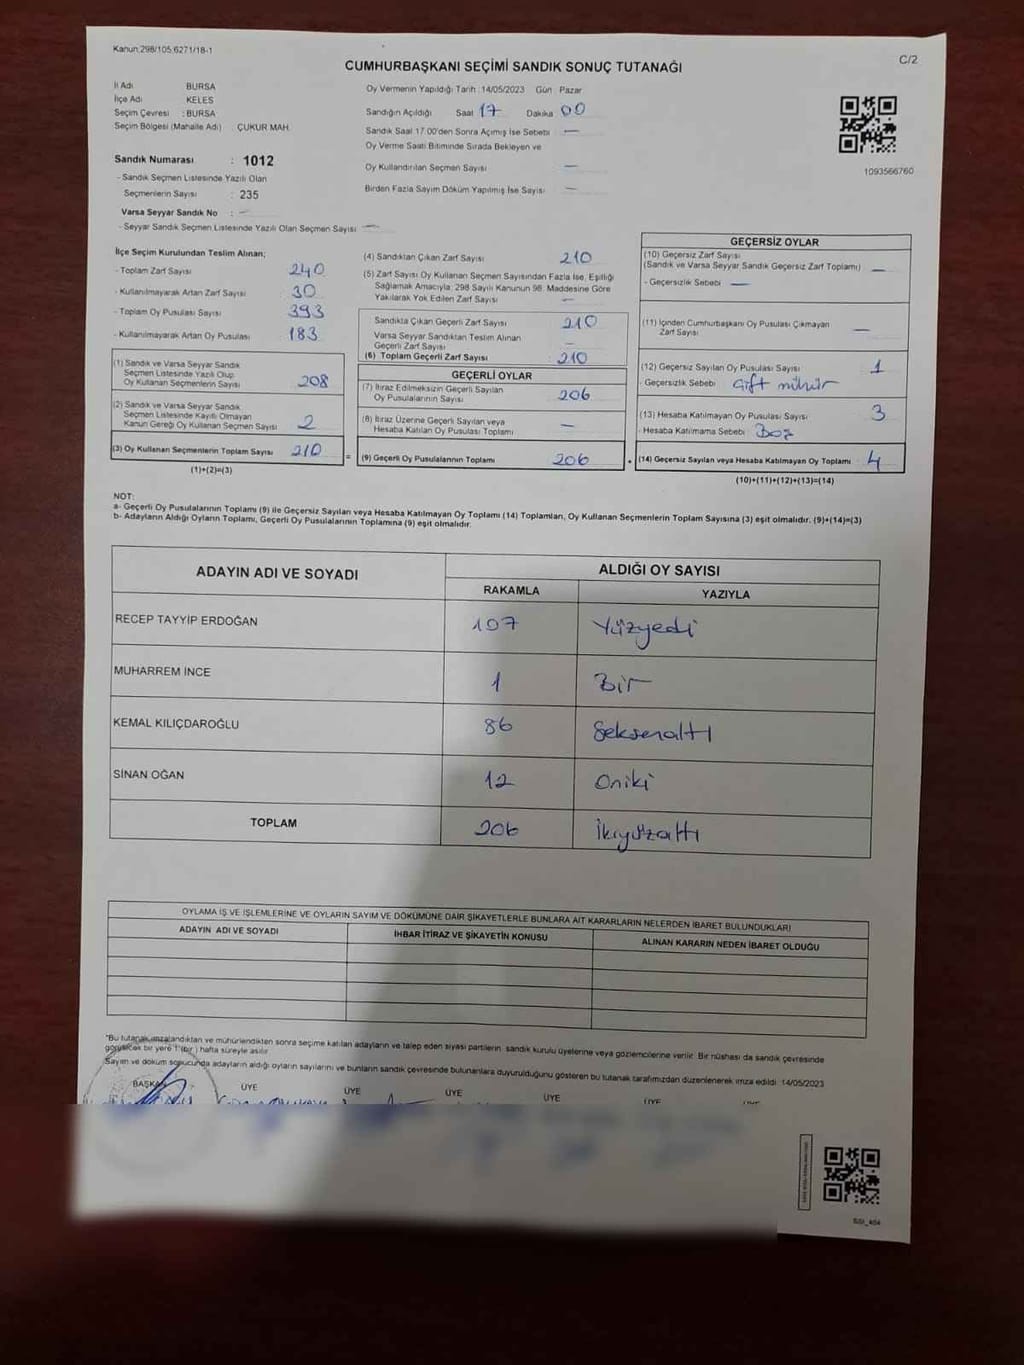 Kanun 298/105,6271/18-1
C/2
CUMHURBAŞKANI SEÇİMİ SANDIK SONUÇ TUTANAĞI
İl Adı BURSA
İlçe Adı KELES
Seçim Çevresi : BURSA
Seçim Bölgesi (Mahalle Adı) : ÇUKUR MAH.
Sandık Numarası : 1012
- Sandık Seçmen Listesinde Yazılı Olan
Seçmenlerin Sayısı : 235
Varsa Seyyar Sandık No : —
- Seyyar Sandık Seçmen Listesinde Yazılı Olan Seçmen Sayısı : —
Oy Vermenin Yapıldığı Tarih : 14/05/2023 Gün : Pazar
Sandığın Açıldığı Saat 17 Dakika 00
Sandık Saat 17.00'den Sonra Açılmış İse Sebebi : —
Oy Verme Saati Bitiminde Sırada Bekleyen ve
Oy Kullandırılan Seçmen Sayısı —
Birden Fazla Sayım Döküm Yapılmış İse Sayısı : —
1093566760
İlçe Seçim Kurulundan Teslim Alınan;
- Toplam Zarf Sayısı 240
- Kullanılmayarak Artan Zarf Sayısı 30
- Toplam Oy Pusulası Sayısı 393
- Kullanılmayarak Artan Oy Pusulası 183
(1) Sandık ve Varsa Seyyar Sandık
Seçmen Listesinde Yazılı Olup
Oy Kullanan Seçmenlerin Sayısı 208
(2) Sandık ve Varsa Seyyar Sandık
Seçmen Listesinde Kayıtlı Olmayan
Kanun Gereği Oy Kullanan Seçmen Sayısı 2
(3) Oy Kullanan Seçmenlerin Toplam Sayısı 210
(1)+(2)=(3)
(4) Sandıktan Çıkan Zarf Sayısı 210
(5) Zarf Sayısı Oy Kullanan Seçmen Sayısından Fazla İse, Eşitliği
Sağlamak Amacıyla; 298 Sayılı Kanunun 98. Maddesine Göre
Yakılarak Yok Edilen Zarf Sayısı —
Sandıkta Çıkan Geçerli Zarf Sayısı 210
Varsa Seyyar Sandıktan Teslim Alınan
Geçerli Zarf Sayısı —
(6) Toplam Geçerli Zarf Sayısı 210
GEÇERLİ OYLAR
(7) İtiraz Edilmeksizin Geçerli Sayılan
Oy Pusulalarının Sayısı 206
(8) İtiraz Üzerine Geçerli Sayılan veya
Hesaba Katılan Oy Pusulası Toplamı —
= (9) Geçerli Oy Pusulalarının Toplamı 206 +
GEÇERSİZ OYLAR
(10) Geçersiz Zarf Sayısı
(Sandık ve Varsa Seyyar Sandık Geçersiz Zarf Toplamı) —
- Geçersizlik Sebebi —
(11) İçinden Cumhurbaşkanı Oy Pusulası Çıkmayan
Zarf Sayısı —
(12) Geçersiz Sayılan Oy Pusulası Sayısı 1
- Geçersizlik Sebebi Çift mühür
(13) Hesaba Katılmayan Oy Pusulası Sayısı 3
- Hesaba Katılmama Sebebi Boş
(14) Geçersiz Sayılan veya Hesaba Katılmayan Oy Toplamı 4
(10)+(11)+(12)+(13)=(14)
NOT:
a- Geçerli Oy Pusulalarının Toplamı (9) ile Geçersiz Sayılan veya Hesaba Katılmayan Oy Toplamı (14) Toplamları, Oy Kullanan Seçmenlerin Toplam Sayısına (3) eşit olmalıdır. (9)+(14)=(3)
b- Adayların Aldığı Oyların Toplamı, Geçerli Oy Pusulalarının Toplamına (9) eşit olmalıdır.
ADAYIN ADI VE SOYADI ALDIĞI OY SAYISI
RAKAMLA YAZIYLA
RECEP TAYYİP ERDOĞAN 107 Yüzyedi
MUHARREM İNCE 1 Bir
KEMAL KILIÇDAROĞLU 86 Seksenaltı
SİNAN OĞAN 12 Oniki
TOPLAM 206 İkiyüzaltı
OYLAMA İŞ VE İŞLEMLERİNE VE OYLARIN SAYIM VE DÖKÜMÜNE DAİR ŞİKAYETLERLE BUNLARA AİT KARARLARIN NELERDEN İBARET BULUNDUKLARI
ADAYIN ADI VE SOYADI İHBAR İTİRAZ VE ŞİKAYETİN KONUSU ALINAN KARARIN NEDEN İBARET OLDUĞU
"Bu tutanak imzalandıktan ve mühürlendikten sonra seçime katılan adayların ve talep eden siyasi partilerin, sandık kurulu üyelerine veya gözlemcilerine verilir. Bir nüshası da sandık çevresinde
görülecek bir yere 1 (bir ) hafta süreyle asılır.
Sayım ve döküm sonucunda adayların aldığı oyların sayılarını ve bunların sandık çevresinde bulunanlara duyurulduğunu gösteren bu tutanak tarafımızdan düzenlenerek imza edildi. 14/05/2023
BAŞKAN ÜYE ÜYE ÜYE ÜYE ÜYE